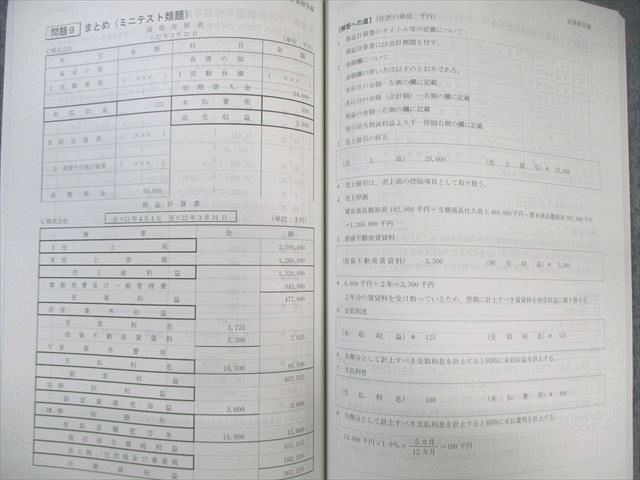 問題9 まとめ（ミニテスト類題）
貸借対照表
×32年3月31日
C株式会社 （単位：千円）
科目 金額 科目 金額
資産の部 負債の部
Ⅰ流動資産 （×××） Ⅰ流動負債 （×××）
短期借入金 24,000
未収収益 125 未払費用 100
前受収益 3,300
Ⅱ固定資産 （×××）
3 投資その他の資産 （×××）
長期預金 50,000
損益計算書
C株式会社 自×31年4月1日 至×32年3月31日 （単位：千円）
摘要 金額
Ⅰ売上高 2,580,000
Ⅱ売上原価 1,260,000
売上総利益 1,320,000
Ⅲ販売費及び一般管理費 843,000
営業利益 477,000
Ⅳ営業外収益
受取利息 3,725
投資不動産賃貸料 3,300 7,025
Ⅴ営業外費用
支払利息 16,500 16,500
経常利益 467,525
Ⅵ特別利益
固定資産売却益 3,000 3,000
Ⅶ特別損失
役員退職慰労金 15,000 15,000
税引前当期純利益 455,525
法人税、住民税及び事業税
当期純利益
【解答への道】（仕訳の単位：千円）
1 損益計算書のタイトル等の記載について
損益計算書には会計期間を付す。
2 金額欄について
金額欄の使い方は以下のとおりである。
各科目の金額…左側の欄に記載
各区分の金額（合計額）…右側の欄に記載
利益の金額…右側の欄に記載
税引前当期純利益より下…原則右側の欄に記載
3 売上値引の修正
（売上高） 25,000 （売上値引）＊ 25,000
＊ 売上値引は、売上高の控除項目として取り扱う。
4 売上原価
期首商品棚卸高192,000千円＋当期商品仕入高1,460,000千円－期末商品棚卸高392,000千円
＝1,260,000千円
5 投資不動産賃貸料
（投資不動産賃貸料） 3,300 （前受収益）＊ 3,300
＊ 6,600千円÷2年＝3,300千円
2年分の賃貸料を受け取っているため、翌期に計上すべき賃貸料を前受収益に振り替える。
6 受取利息
（未収収益）＊ 125 （受取利息） 125
＊ 当期分として計上すべき受取利息を計上すると同時に未収収益を計上する。
7 支払利息
（支払利息） 100 （未払費用）＊ 100
＊ 当期分として計上すべき支払利息を計上すると同時に未払費用を計上する。
24,000千円×1.0％×5カ月/12カ月＝100千円